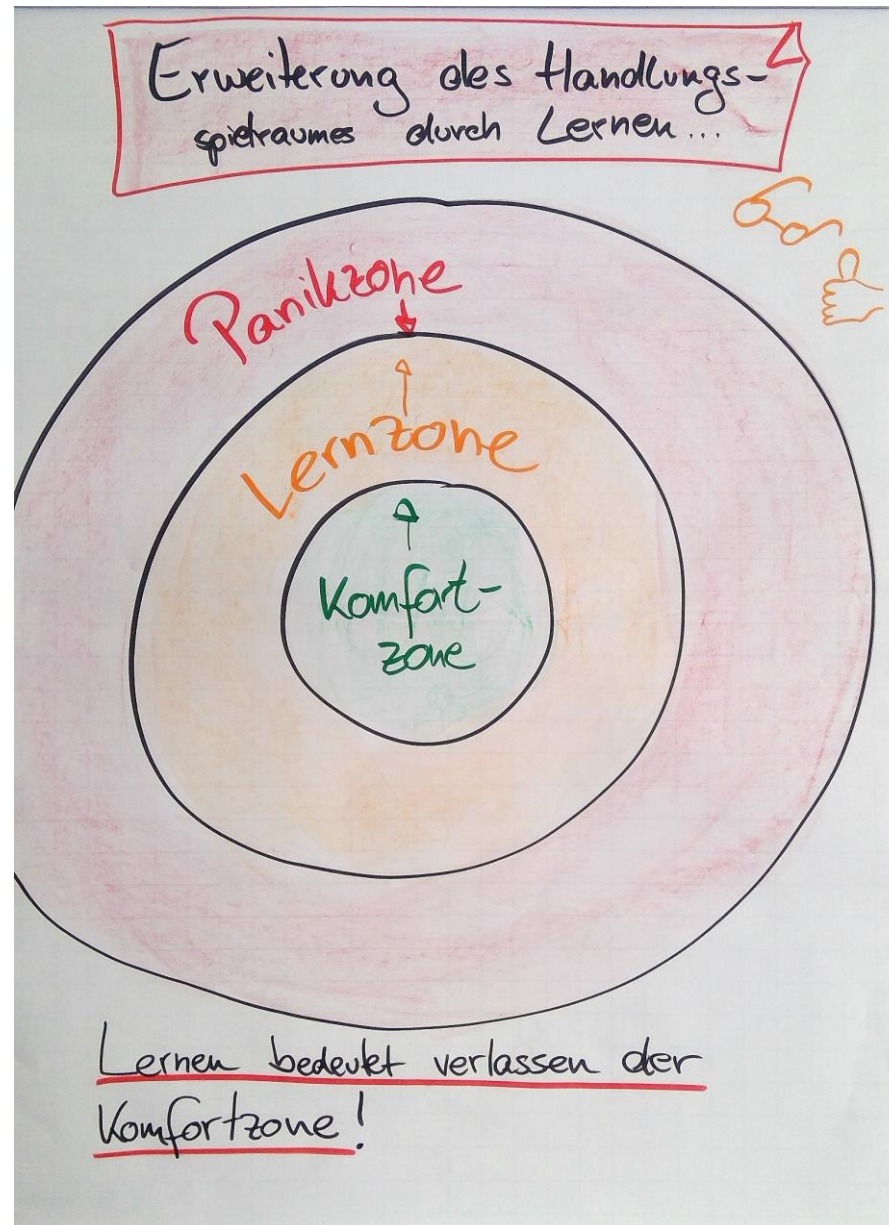 Erweiterung des Handlungs-
spielraumes durch Lernen...
Panikzone
Lernzone
Komfort-
zone
Lernen bedeutet verlassen der
Komfortzone!